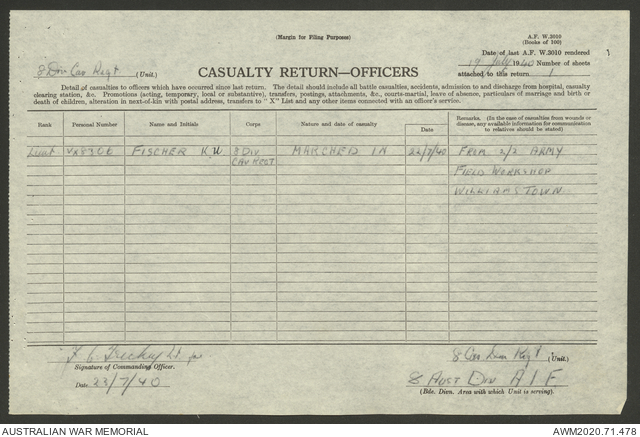 (Margin for Filing Purposes)
A.F. W.3010
(Books of 100)
Date of last A.F. W.3010 rendered
19 July 1940 Number of sheets
attached to this return 1
8 Div Cav Regt (Unit.)
CASUALTY RETURN—OFFICERS
Detail of casualties to officers which have occurred since last return. The detail should include all battle casualties, accidents, admission to and discharge from hospital, casualty
clearing station, &c. Promotions (acting, temporary, local or substantive), transfers, postings, attachments, &c., courts-martial, leave of absence, particulars of marriage and birth or
death of children, alteration in next-of-kin with postal address, transfers to "X" List and any other items connected with an officer's service.
Rank Personal Number Name and Initials Corps Nature and date of casualty Date Remarks. (In the case of casualties from wounds or
disease, any available information for communication
to relatives should be stated)
Lieut VX8300 FISCHER K W 8 DIV MARCHED IN 22/7/40 FROM 2/2 ARMY
CAV REGT FIELD WORKSHOP
WILLIAMSTOWN
Lt
Signature of Commanding Officer.
Date 23/7/40
8 Cav Div Regt (Unit.)
8 AUST DIV A I F
(Bde. Divn. Area with which Unit is serving).
AUSTRALIAN WAR MEMORIAL
AWM2020.71.478